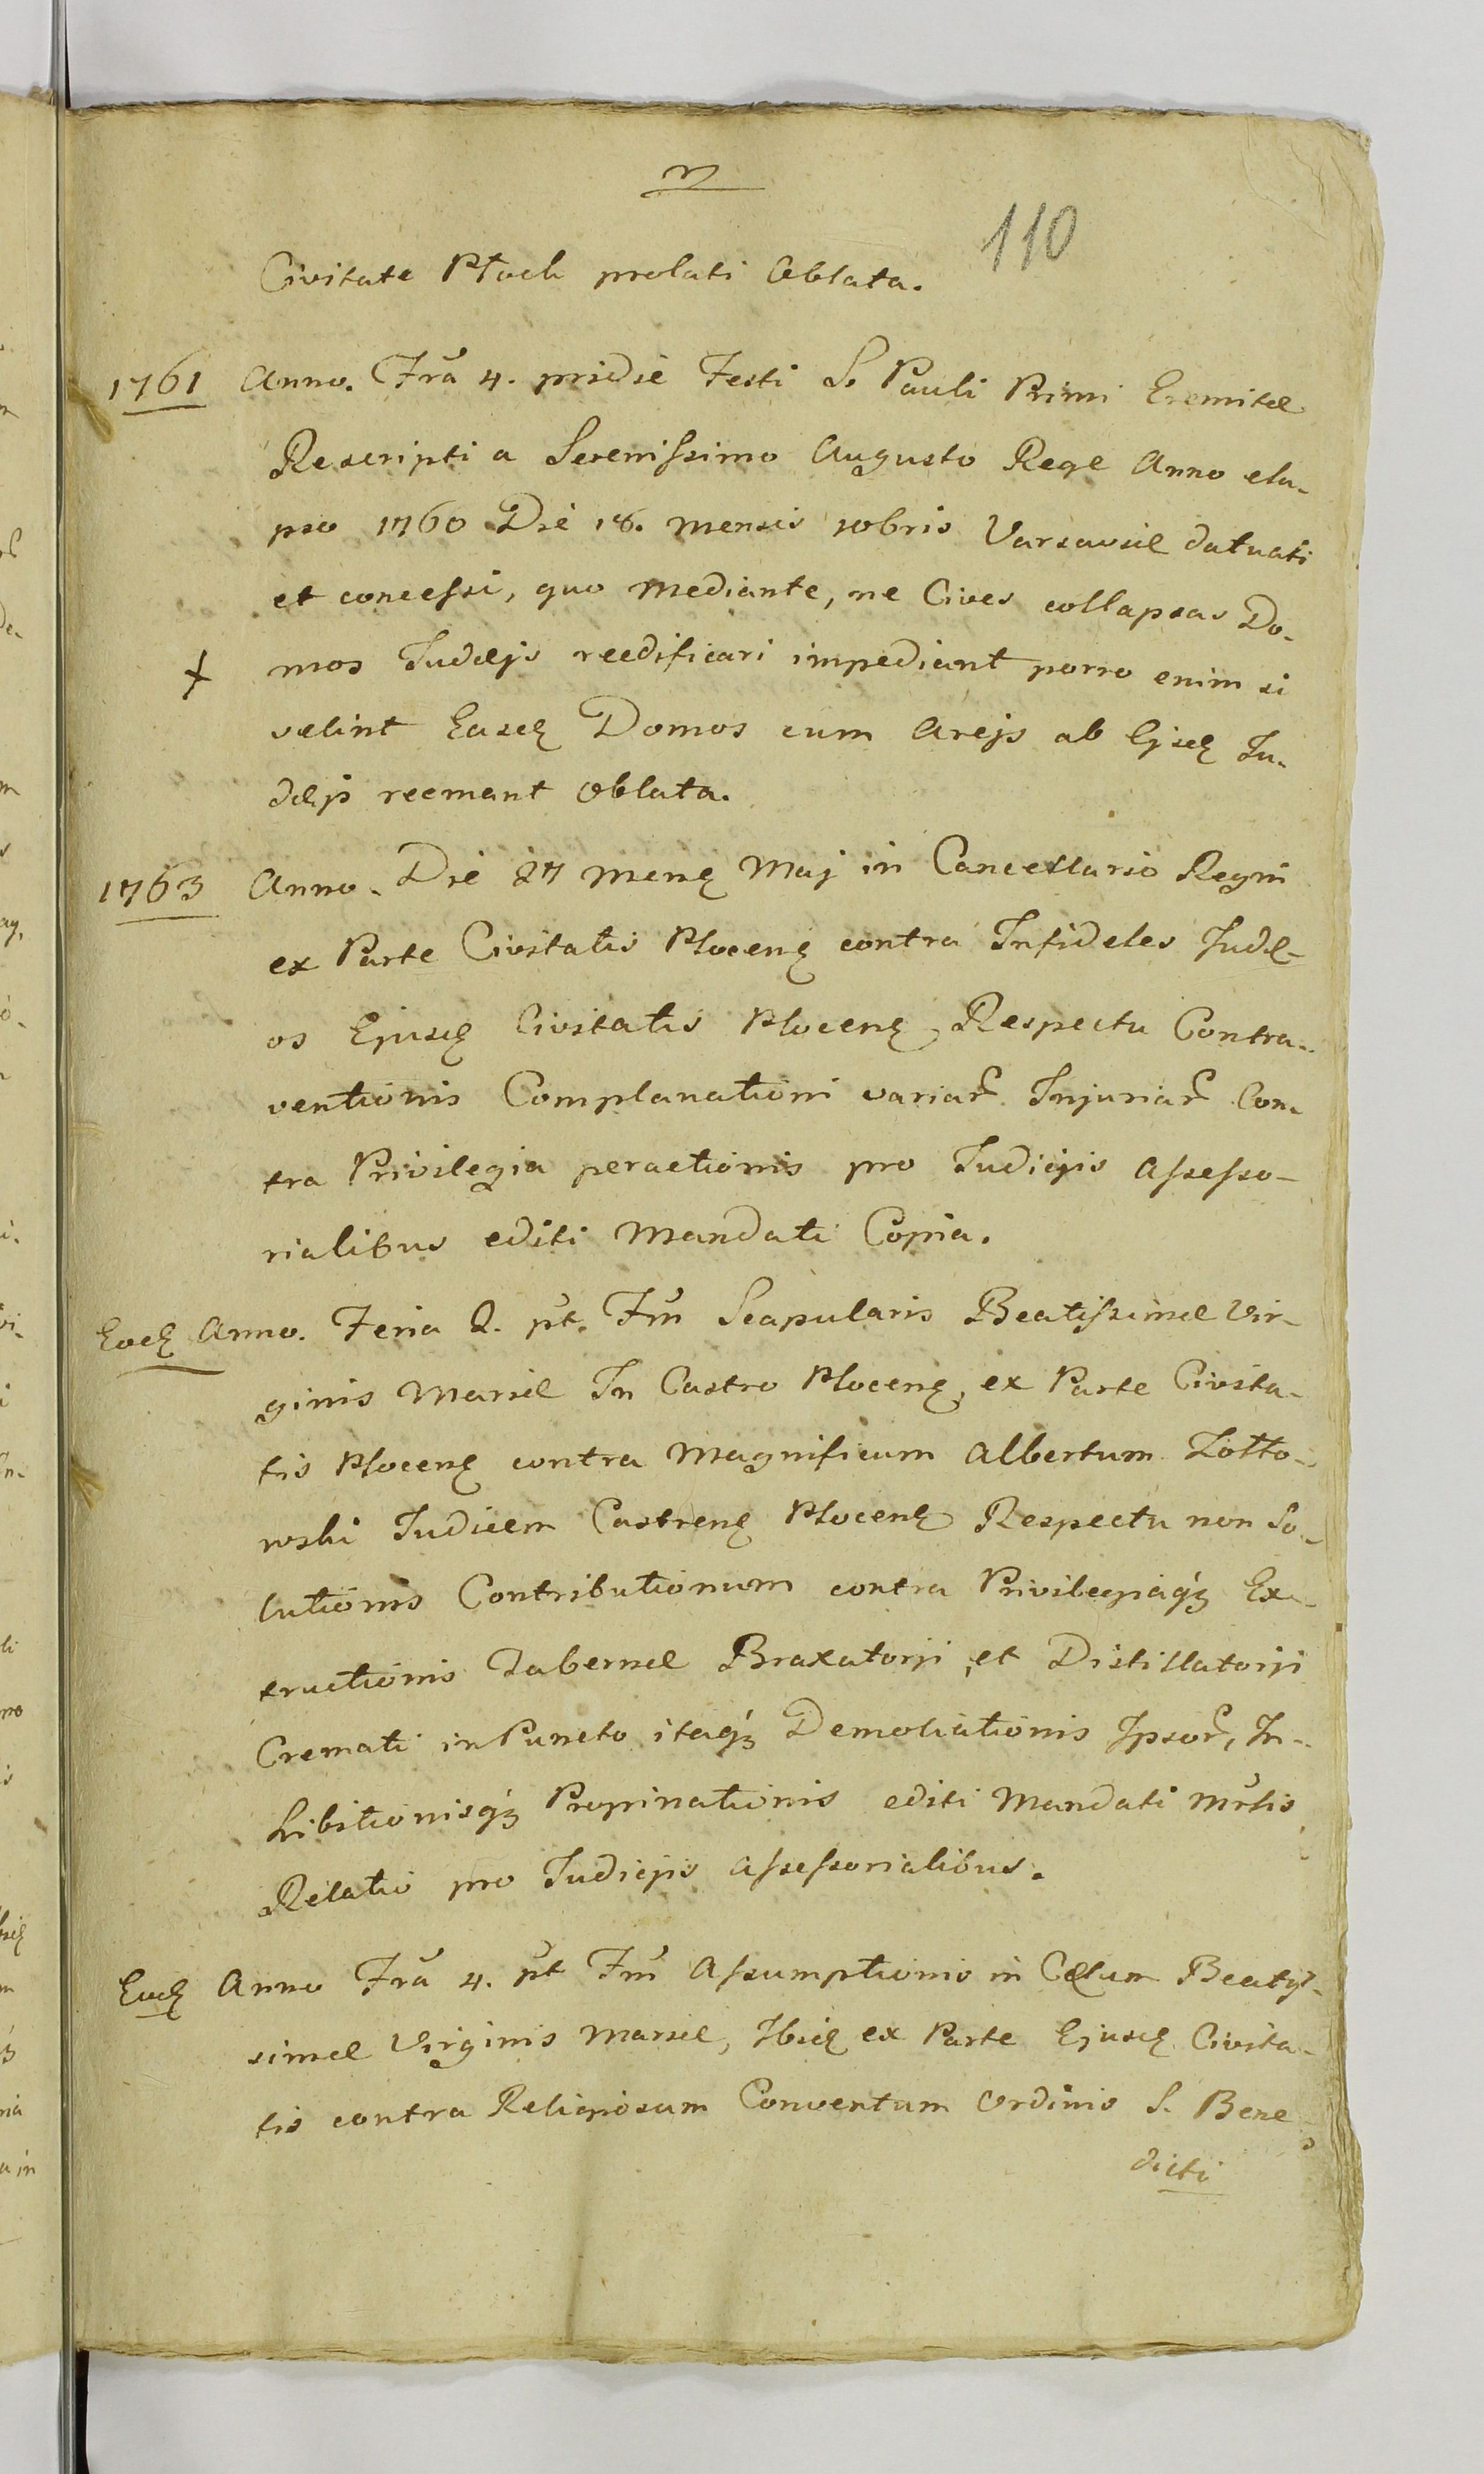 110
Civitate Płock prolati Oblata.
1761 Anno. Fra 4. pridie Festi S. Pauli Primi Eremitæ
Rescripti a Serenissimo Augusto Rege Anno ela-
pso 1760 Die 18. mensis xobris Varsaviæ datuati
et concessi, quo mediante, ne Cives collapsas Do-
+ mos Judæjs reedificari impediant porro enim si
velint Easdē Domos cum Arejs ab Ejsdē Ju-
dæjs reemant Oblata.
1763 Anno. Die 27 menę Maj in Cancellario Regni
ex Parte Civitatis Plocenę contra Infideles Judæ-
os Ejusdē Civitatis Plocenę Respectu Contra-
ventionis Complanationi variar. Injuriar. Con-
tra Privilegia peractionis pro Judicijs Assesso-
rialibus editi Mandati Copia.
Eodē Anno. Feria 2. pt. Fm Scapularis Beatissimæ Vir-
ginis Mariæ In Castro Plocenę, ex Parte Civita-
tis Plocenę contra Magnificum Albertum Zółto-
wski Judicem Castrenę Plocenę Respectu non So-
lutionis Contributionum contra Privilegiaqz Ex-
tructionis Tabernæ Braxatorji, et Distillatorji
Cremati in Puncto itaqz Demolitionis Ipsor, In-
hibitionisqz Propinationis editi Mandati mrtis
Relatio pro Judicijs Assessorialibus.
Eodē Anno Fra 4. pt Fm Assumptionis in Cælum Beatis-
simæ Virginis Mariæ, Ibidē ex Parte Ejusdē Civita-
tis contra Religiosum Conventum Ordinis S. Bene-
dicti